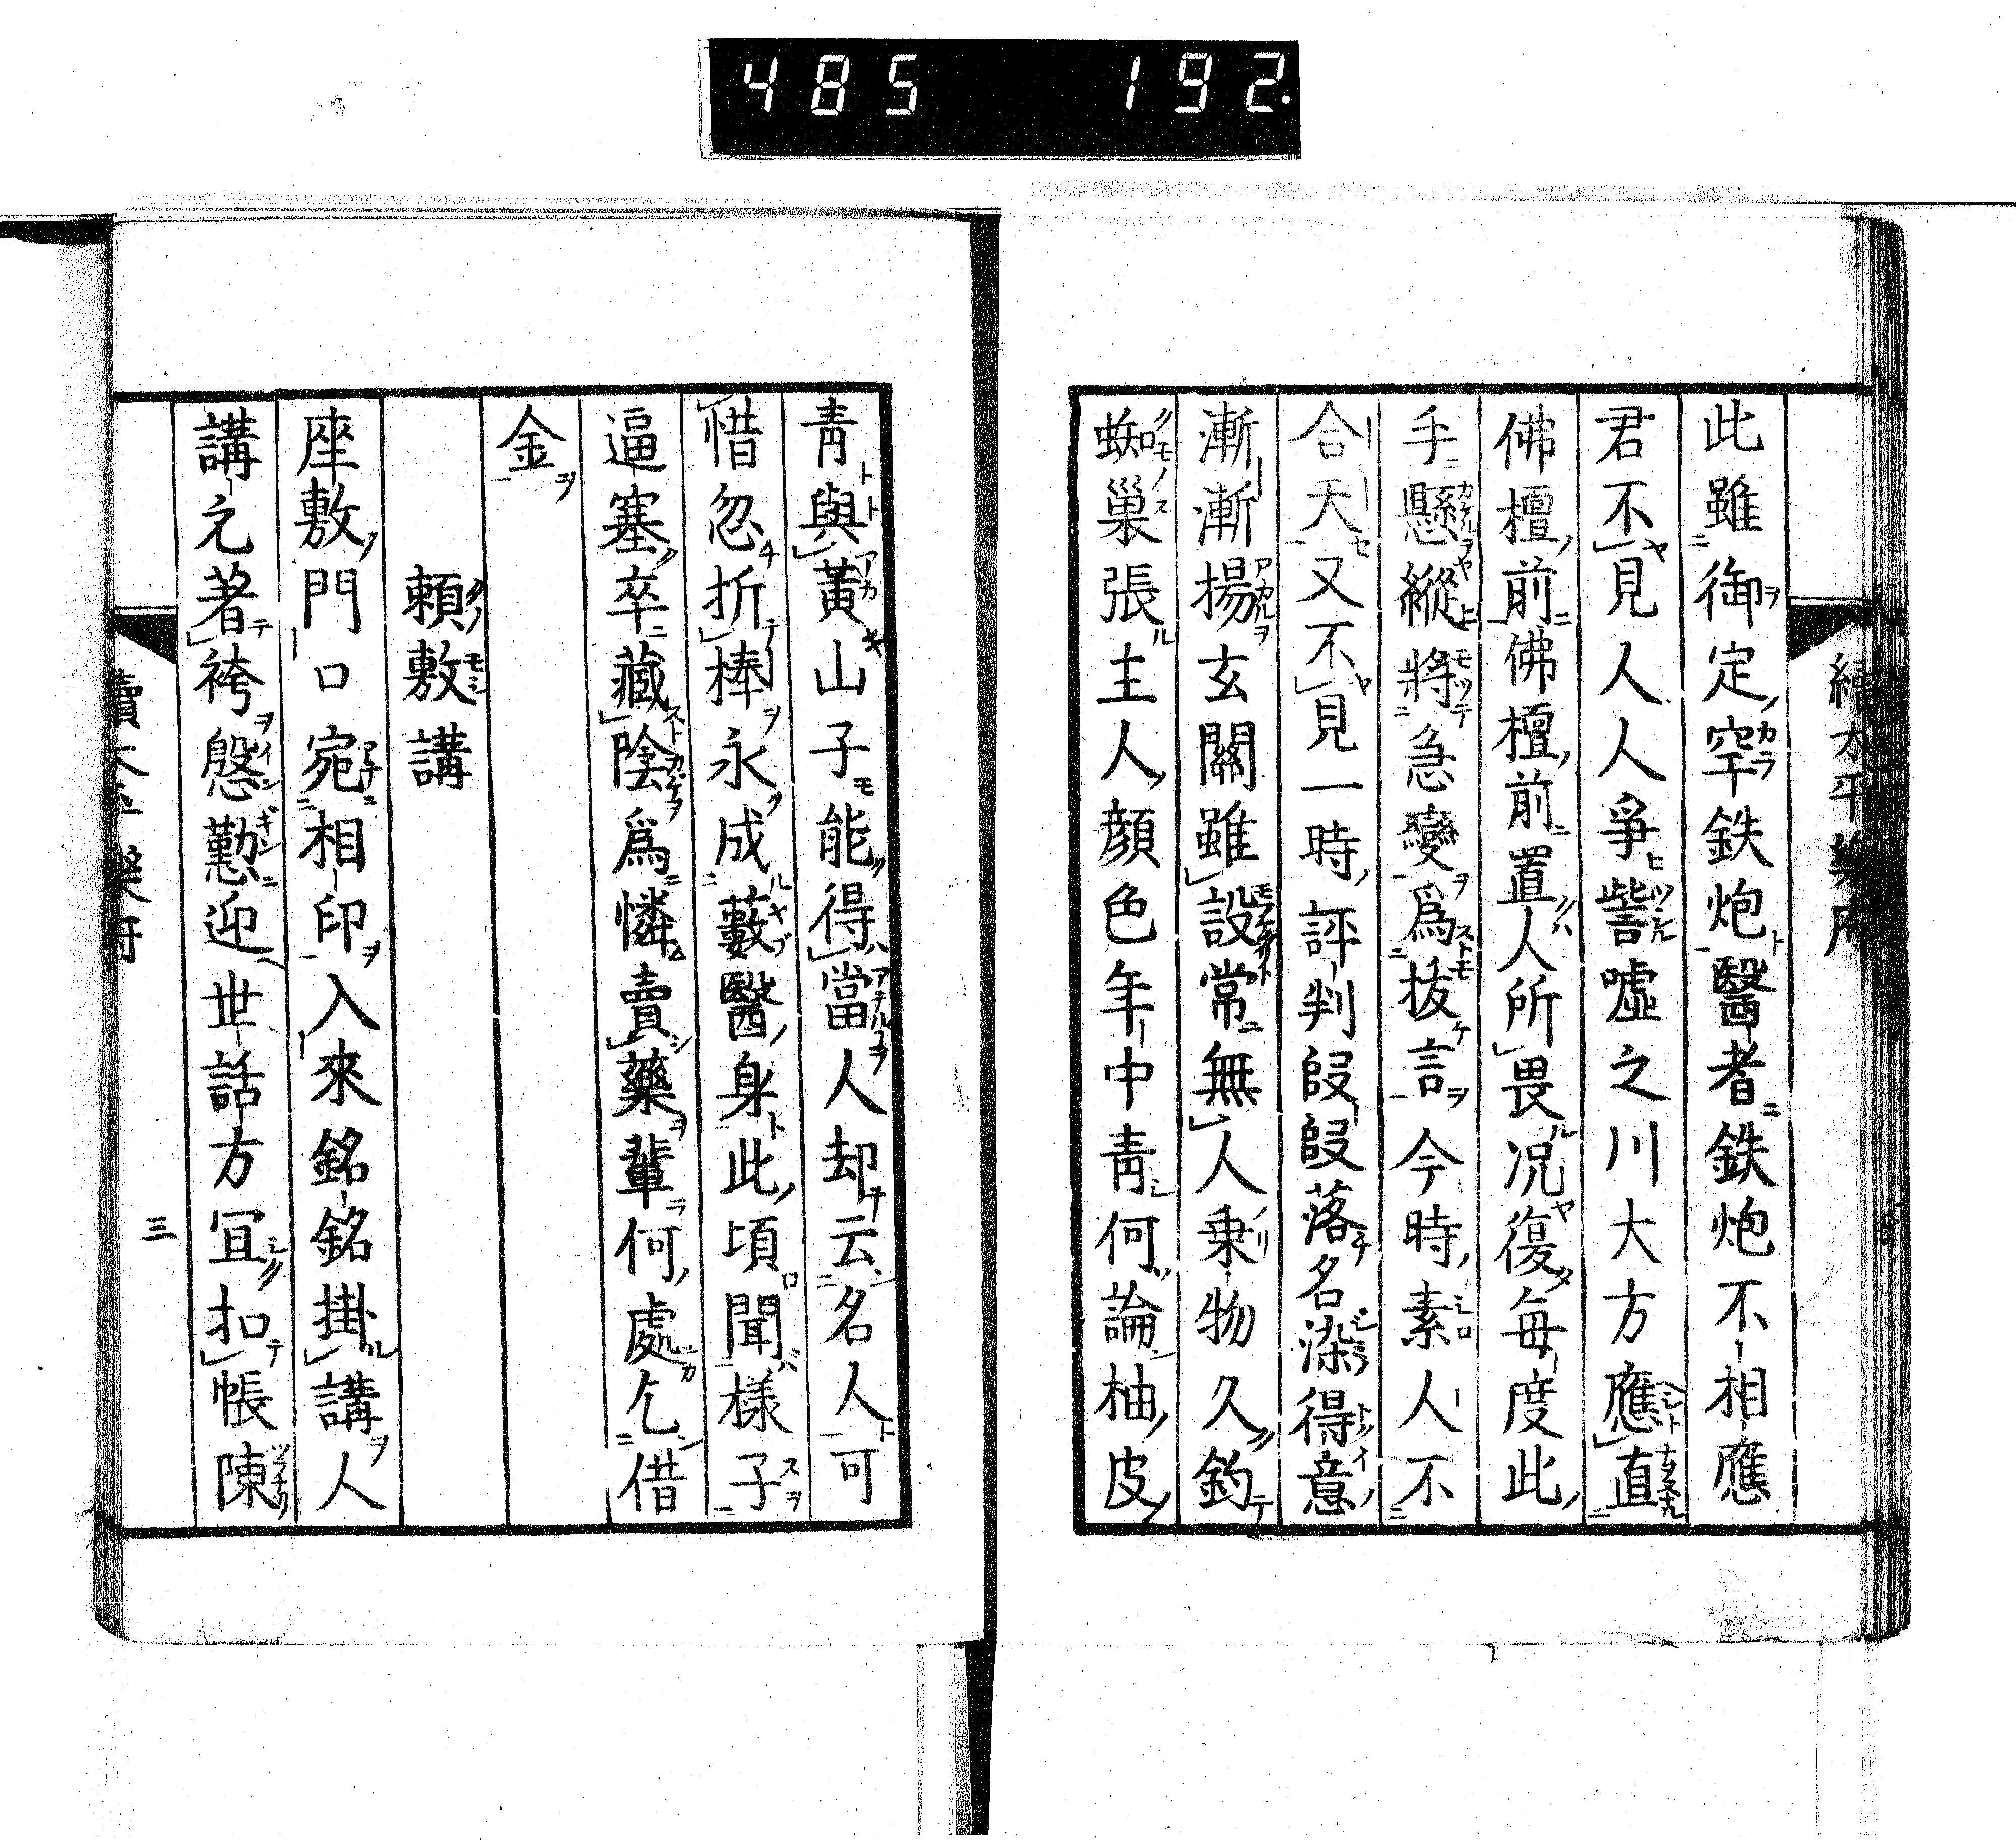 485 192.
續太平樂府
此雖御定空鉄炮醫者鉄炮不相應
君不見人人爭訾噓之川大方應直
佛檀前佛檀前置人所畏况復每度此
手懸縱將急變爲拔言今時素人不
合天又不見一時評判段段落名染得意
漸漸揚玄關雖設常無人乗物久釣
蜘巢張主人顔色年中靑何論柚皮
靑與黃山子能得當人却云名人可
惜忽折棒永成藪醫身此頃聞樣子
逼塞卒藏陰爲憐賣藥輩何處乞借
金
賴敷講
座敷門口宛相印入來銘銘掛講人
講元著袴慇懃迎世話方冝扣帳陳
三